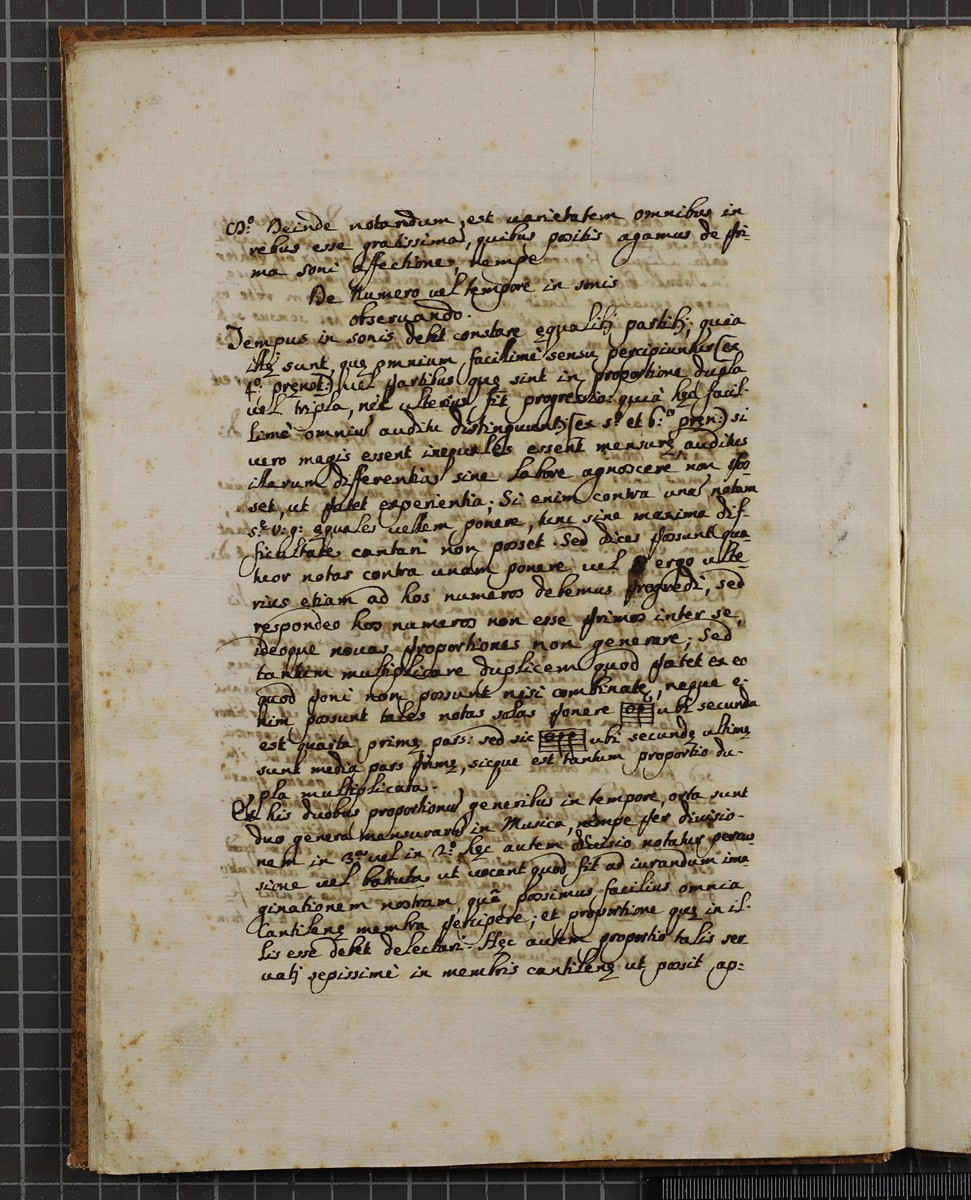 8º. Deinde notandum est varietatem omnibus in
rebus esse gratissimā, quibus positis agamus de pri-
ma soni affectione, nempe
De Numero vel tempore in sonis
obseruando.
Tempus in sonis debet constare equalib; partib; quia
illę sunt, quę omnium facillimè sensu percipiuntur (ex
4º. pręnot:) vel partibus quę sint in proportione dupla
vel tripla, nec ulterius fit progressio: quià hęc facil-
limè omniū auditu distinguuntur (ex 5º. et 6º. pręn:) si
vero magis essent inequales essent mensurę, auditus
illarum differentias sine labore agnoscere non pos
set, ut patet experientia; Si enim contra unā notam
5º. v: g: ęquales vellem ponere, tunc sine maxima dif-
ficultate cantari non posset. Sed dices possunt qua
tuor notas contra unam ponere vel ergo ulte
rius etiam ad hos numeros debemus progredi, sed
respondeo hos numeros non esse primos inter se,
ideoque novas proportiones non generare; Sed
tantum multiplicare duplicem quod patet ex eo
quod poni non possunt nisi combinatę, neque e-
nim possunt tales notas solas ponere ubi secunda
est quarta primę pars: sed sic ubi secundę ultimę
sunt media pars primę, sicque est tantum proportio du-
pla multiplicata.
Ex his duobus proportionū generibus in tempore, orta sunt
duo genera mensurarū in Musica, nempe per divisio-
nem in 3ª. vel in 2ª. hęc autem divisio notatur percus
sione vel battuta ut vocant quod fit ad iuvandum ima
ginationem nostram, quâ possimus facilius omnia
Cantilenę membra percipere; et proportione quę in il-
lis esse debet delectari. Hęc autem proportio talis ser
vatʒ sępissimè in membris cantilenę ut possit ap-